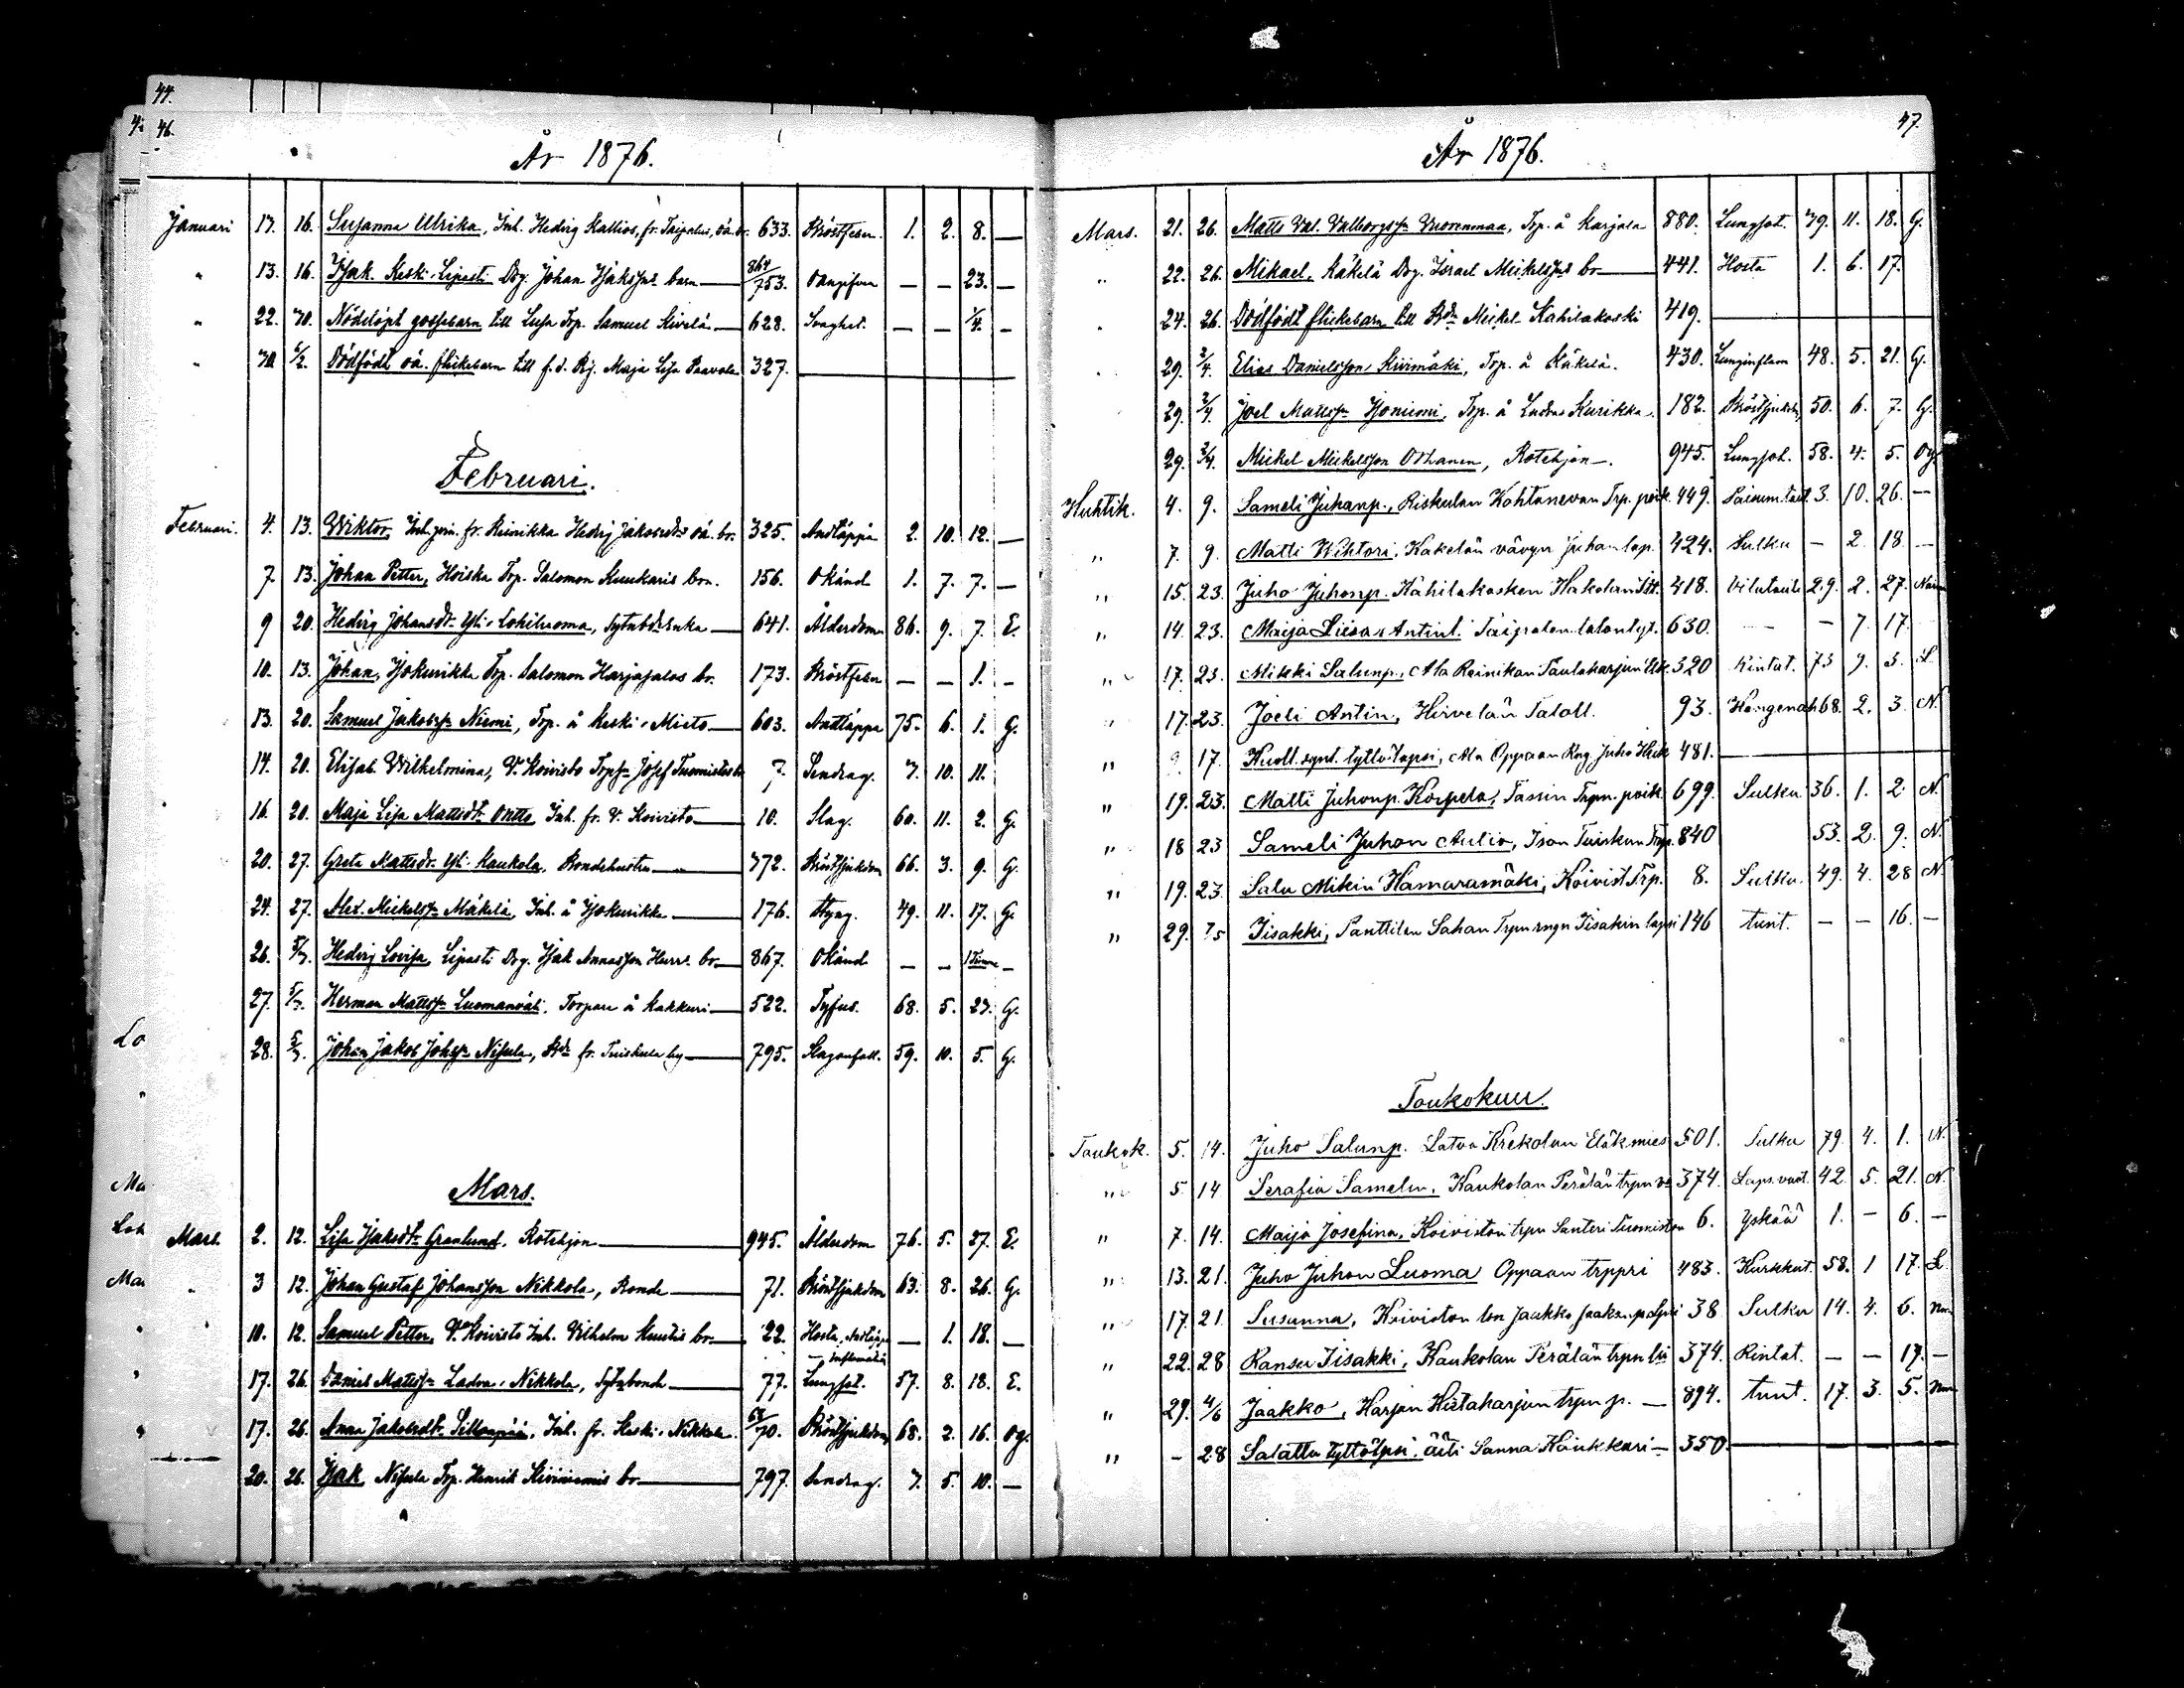 44.
46.
År 1876.
Januari 13. 16. Susanna Ulrika, Inh. Hedvig Kallios, fr. Taipalus, oä. br. 633. Bröstfeber. 1. 2. 8. —
" 13. 16. Isak Keski-Lipasti Drg. Johan Isakssons barn — 864/753. Okänd — — 23. —
" 22. 30. Nöddöpt gossebarn till Lusa Trp. Samuel Kivelä — 628. Svaghet. — — 1/4. —
" 30. 6/2. Dödfödt oä. flickebarn till f.d. Pig. Maja Lisa Paavola 327. —
Februari.
Februari. 4. 13. Wiktor, Inh. fr. Reinikka Hedvig Jakobsdr oä. br. 325. Andtäppa 2. 10. 12. —
7. 13. Johan Petter, Hoiska Trp. Salomon Kuukaris brn. 156. Okänd 1. 7. 7. —
9 20. Hedvig Johansdr Yli-Lohiluoma, Sytnbdeenka — 641. Ålderdom 86. 9. 7. E.
10. 13. Johan, Isokurikka Trp. Salomon Harjasalos br. 173. Bröstfeber — — 1. —
13. 20. Samuel Jakobsson Niemi, Trp. å Keski-Mieto — 603. Andtäppa 75. 6. 1. G.
14. 20. Elisab. Wilhelmina, V. Koivisto Trps Josef Tuomistos br 7. Sendrag. 3. 10. 11.
16. 20. Maja Lisa Mattsdr Ontto Inh. fr. V. Koivisto — 10. Slag. 60. 11. 2. G.
20. 27. Greta Mattsdr Yli-Kaukola, Bondehustru — 372. Bröstsjukdom 66. 3. 9. G.
24. 27. Alex. Mickelsson Mäkelä, Inh. å Isokurikka — 176. Styng. 49. 11. 17. G.
26. 5/3. Hedvig Lovisa, Lipasti Drg. Isak Annasson br — 867. Okänd — — 1 Timme —
27. 5/3. Herman Mattsson Luomanväli, Torpare å Kakkuri — 522. Tyfus. 68. 5. 23. G.
28. 5/3. Johan Jakob Johsson Nisula, Bde fr. Tuiskula by — 795. Slaganfall. 59. 10. 5. G.
Mars.
Mars. 2. 12. Lisa Isaksdr Granlund, Rotehjon — 945. Ålderdom 76. 5. 27. E.
" 3 12. Johan Gustaf Johansson Nikkola, Bonde — 71. Bröstsjukdom 63. 8. 26. G.
" 10. 12. Samuel Petter, V. Koivisto Inh. Wilhelm br — 22. Hosta, Andtäppa — 1. 18. —
" 17. 26. Daniel Mattsson Ladva-Nikkola, Sytnbonde — 77. Lunginflammation 57. 8. 18. E.
" 17. 26. Anna Jakobsdr Sillanpää, Inh. fr. Keski-Nikkola. 68/70. Bröstsjukdom 68. 2. 16. Og.
20. 26. Isak Nisula Trp. Henrik Kiviniemis br — 797. Sendrag. 3. 5. 10. —
47.
År 1876.
Mars. 21. 26. Matts Val. Valborgsson Vuorenmaa, Trp. å Karjala 880. Lungsot. 39. 11. 18. G.
" 22. 26. Mikael, Käkelä Drg. Israel Mickelssons br — 441. Hosta 1. 6. 17.
" 24. 26. Dödfödt flickebarn till Bde Mickel Kahilakoski 419. —
" 29. 2/4. Elias Danielsson Kiirimäki, Trp. å Käkelä. 430. Lunginflam 48. 5. 21. G.
29. 2/4. Joel Mattsson Isoniemi, Trp. å Ladva Kurikka. 182. Bröstsjukdom 50. 6. 7. G.
29. 2/4. Mickel Mickelsson Orhanen, Rotehjon —. 945. Lungsot. 58. 4. 5. Og.
Huhtik. 4. 9. Sameli Juhanp., Riskulan Kohtanevan Trp. poik. 449. 3. 10. 26. —
" 7. 9. Matti Wihtori, Käkelän vävyn Juhan lap. 424. Sulku — 2. 18. —
" 15. 23. Juho Juhonp. Kähilakosken Hakolan Isn. 418. Vilutauti 29. 2. 27. Nain
" 14. 23. Maija Liisa Antint. Taipalen talontyt. 630. — — 7. 17.
" 17. 23. Mikki Salunp., Ala Reinikan Tautaharjun Elk. 320 Rintat. 73 9. 3. L.
" 17. 23. Joeli Antin, Hirvelän Taloll. 93. Hengenah. 68. 2. 3. N.
" 9. 17. Kuoll. synt. tyttö lapsi, Ala Oppaan Rng. Juho Heik 481. —
" 19. 23. Matti Juhonp. Korpela, Tassin Trpn. poik. 699. Sulku. 36. 1. 2. N.
" 18 23 Sameli Juhon Aulio, Ison Tuiskun Trp. 840 53. 2. 9. N.
" 19. 23. Salu Mikin Hamaramäki, Koivist Trp. 8. Sulku. 49. 4. 28 N.
" 29. 7/5 Iisakki, Panttilan Sahan Trpn rngn Iisakin lapsi 146 tunt. — — 16. —
Toukokuu.
Toukok. 5. 14. Juho Salunp. Latva Krekolan Eläkmies 501. Sulku 79. 4. 1. N.
" 5. 14 Serafia Samelin, Kaukolan Perälän trpn vo 374. Laps. vuot. 42. 5. 21. N.
" 7. 14. Maija Josefina, Koiviston trpn Santeri Tuomiston 6. Yskää 1. — 6. —
" 13. 21. Juho Juhon Luoma Oppaan trppri 483. Kurkkut. 58. 1 17. L.
" 17. 21. Susanna, Koiviston ton Jaakko Jaaka. p. lapsi 38 Sulku 14. 4. 6. Nm
" 22. 28 Ransu Iisakki, Kaukolan Perälän trpn lsi 374. Rintat. — — 17. —
" 29. 4/6 Jaakko, Harjan Hietaharjun trpn p. — 894. tunt. 17. 3. 5. Nm
" — 28 Salattu tyttölpsi. äiti Sanna Känkkäri — 350. —